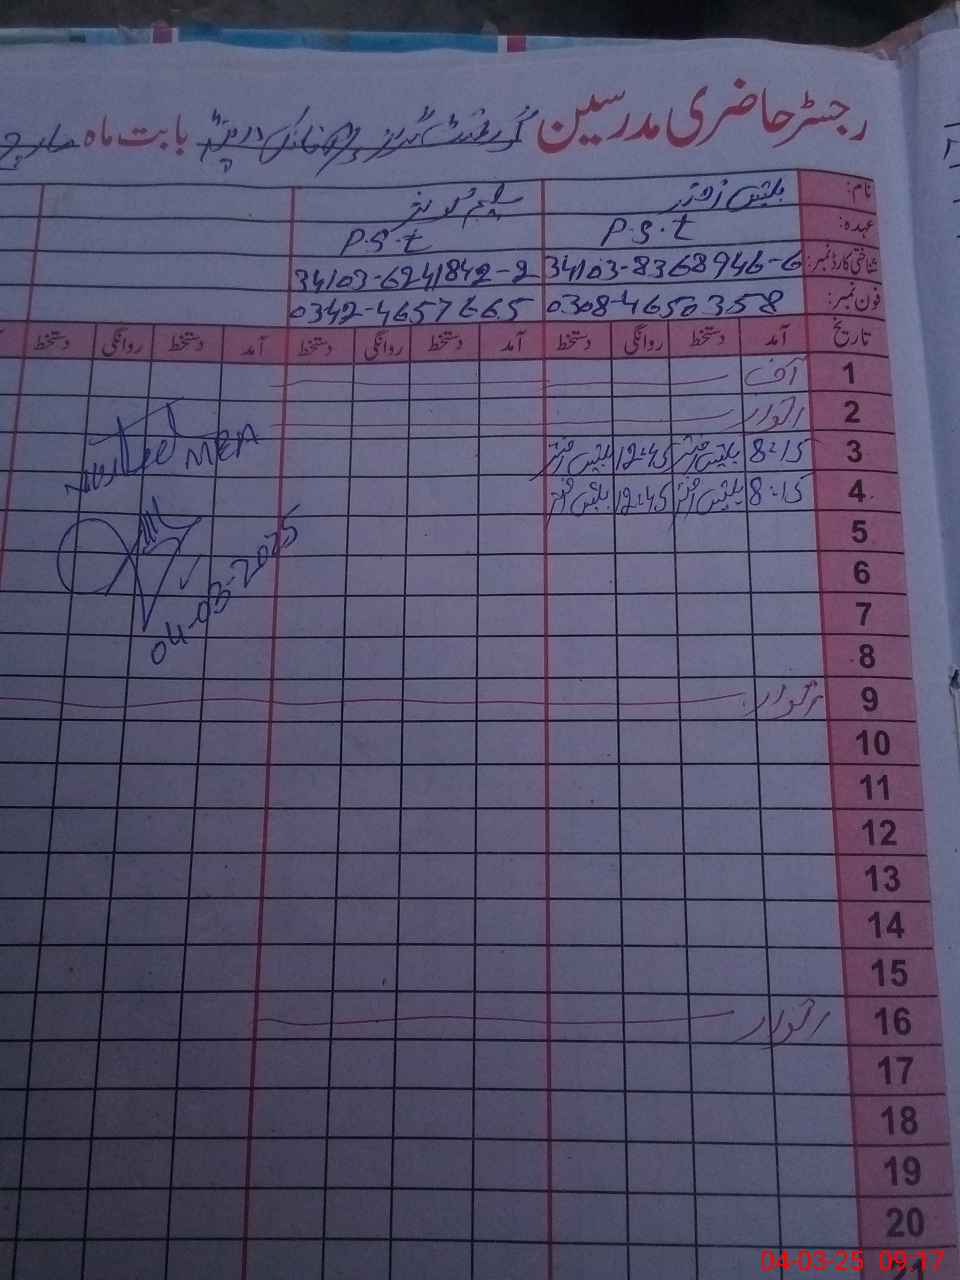 رجسٹر حاضری مدرسین گورنمنٹ گرلز پرائمری سکول بابت ماہ مارچ
نام: بلقیس اختر
عہدہ: P.S.t P.S.t
شناختی کارڈ نمبر: 34103-8368946-6 34103-6241842-2
فون نمبر: 0308-4650358 0342-4657665
تاریخ آمد دستخط روانگی دستخط آمد دستخط روانگی دستخط آمد دستخط روانگی دستخط
1
2 اتوار
3 8:15 بلقیس اختر 12:45 بلقیس اختر
4 8:15 بلقیس اختر 12:45 بلقیس اختر
5
6
7
8
9 اتوار
10
11
12
13
14
15
16 اتوار
17
18
19
20
MEA
04-03-2025
04-03-25 09:17